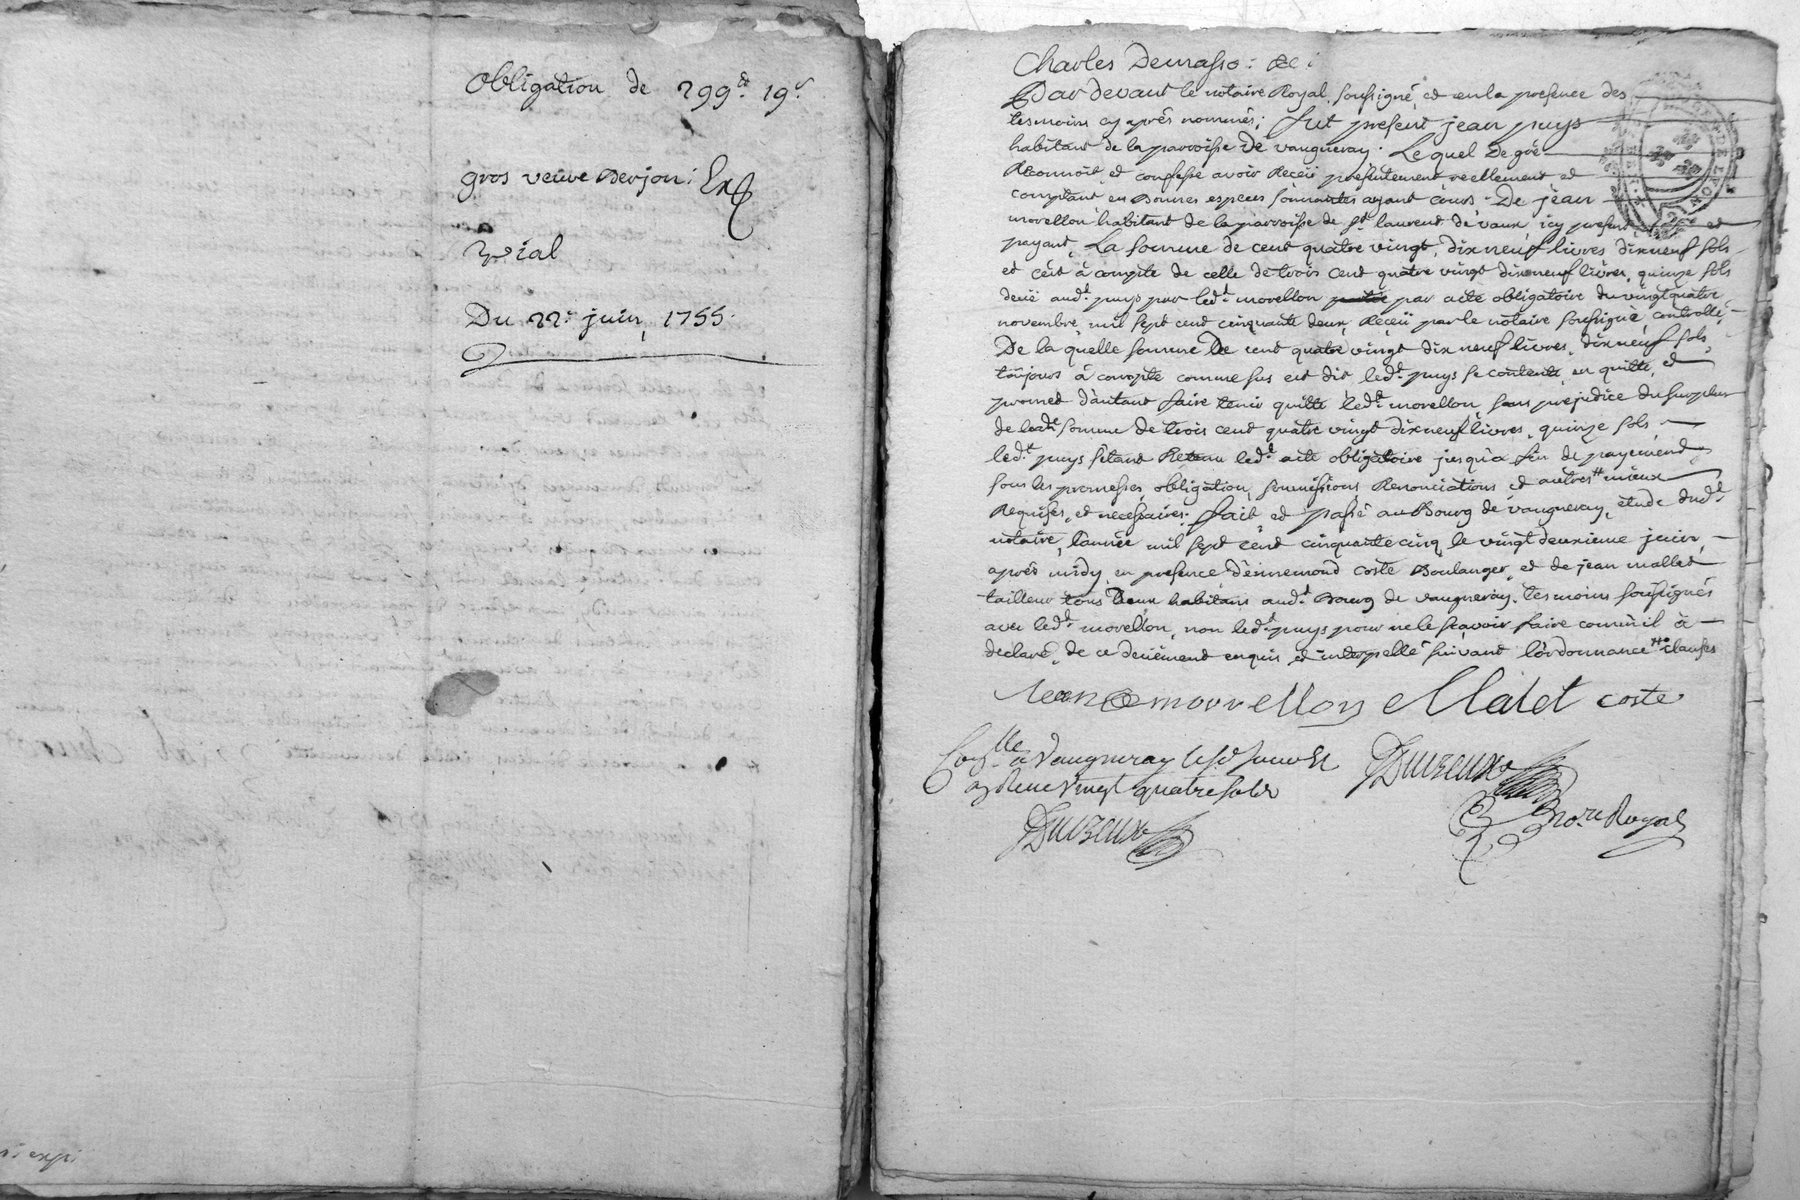 Obligation de 299#. 19s.
gros veuve Berjon: Exp
vial
Du 22e. juin, 1755.
exp:
Charles Demasso: &c:
Pardevant le notaire Royal, soussigné, et en la presence des
tesmoins cy après nommés; fut present jean puys
habitant de la parroisse de vaugneray. Lequel de gré
Reconnoit et confesse avoir Receü presentement reellement et
comptant en Bonnes especes sonnantes ayant cours. De jean
morellon habitant de la parroisse de st. laurent de vaux icy present, et
payant, La somme de cent quatre vingt, dix neuf livres dixneuf sols
et c'est à compte de celle de trois cent quatre vingt dixneuf livres, quinze sols
deüe aud.t puys par led.t morellon par acte obligatoire du vingtquatre
novembre, mil sept cent cinquante deux, Reçeü par le notaire soussigné, controllé,
De la quelle somme De cent quatre vingt dix neuf livres, dixneuf sols,
toujours à compte comme sus est dit led.t puys se contente, en quitte, et
promet d'autant faire tenir quitte led.t morellon, sans prejudice du surplus
de lad.te somme de trois cent quatre vingt dixneuf livres, quinze sols,
led.t puys s'étant Retenu led.t acte obligatoire jusqu'a fin de payement,
sous les promesses, obligation, soumissions Renonciations et autres # mieux
Requises, et necessaires. fait et passé au Bourg de vaugneray, étude dud.t
notaire, l'année mil sept cent cinquante cinq le vingt deuxieme juin,
après midy, en presence d'ennemond coste Boulanger, et de jean mallet
tailleur tous deux habitans aud.t Bourg de vaugneray. tesmoins soussignés
avec led.t morellon, non led.t puys pour ne le sçavoir faire comm'il à
declaré, de ce deüement enquis, et interpellé suivant l'ordonnance # clauses
Jean morrellon Malet coste
Con.lle à Vaugneray le
Reçu Vingt quatre sols
Duvieux
Nore. Royal
Duvieux